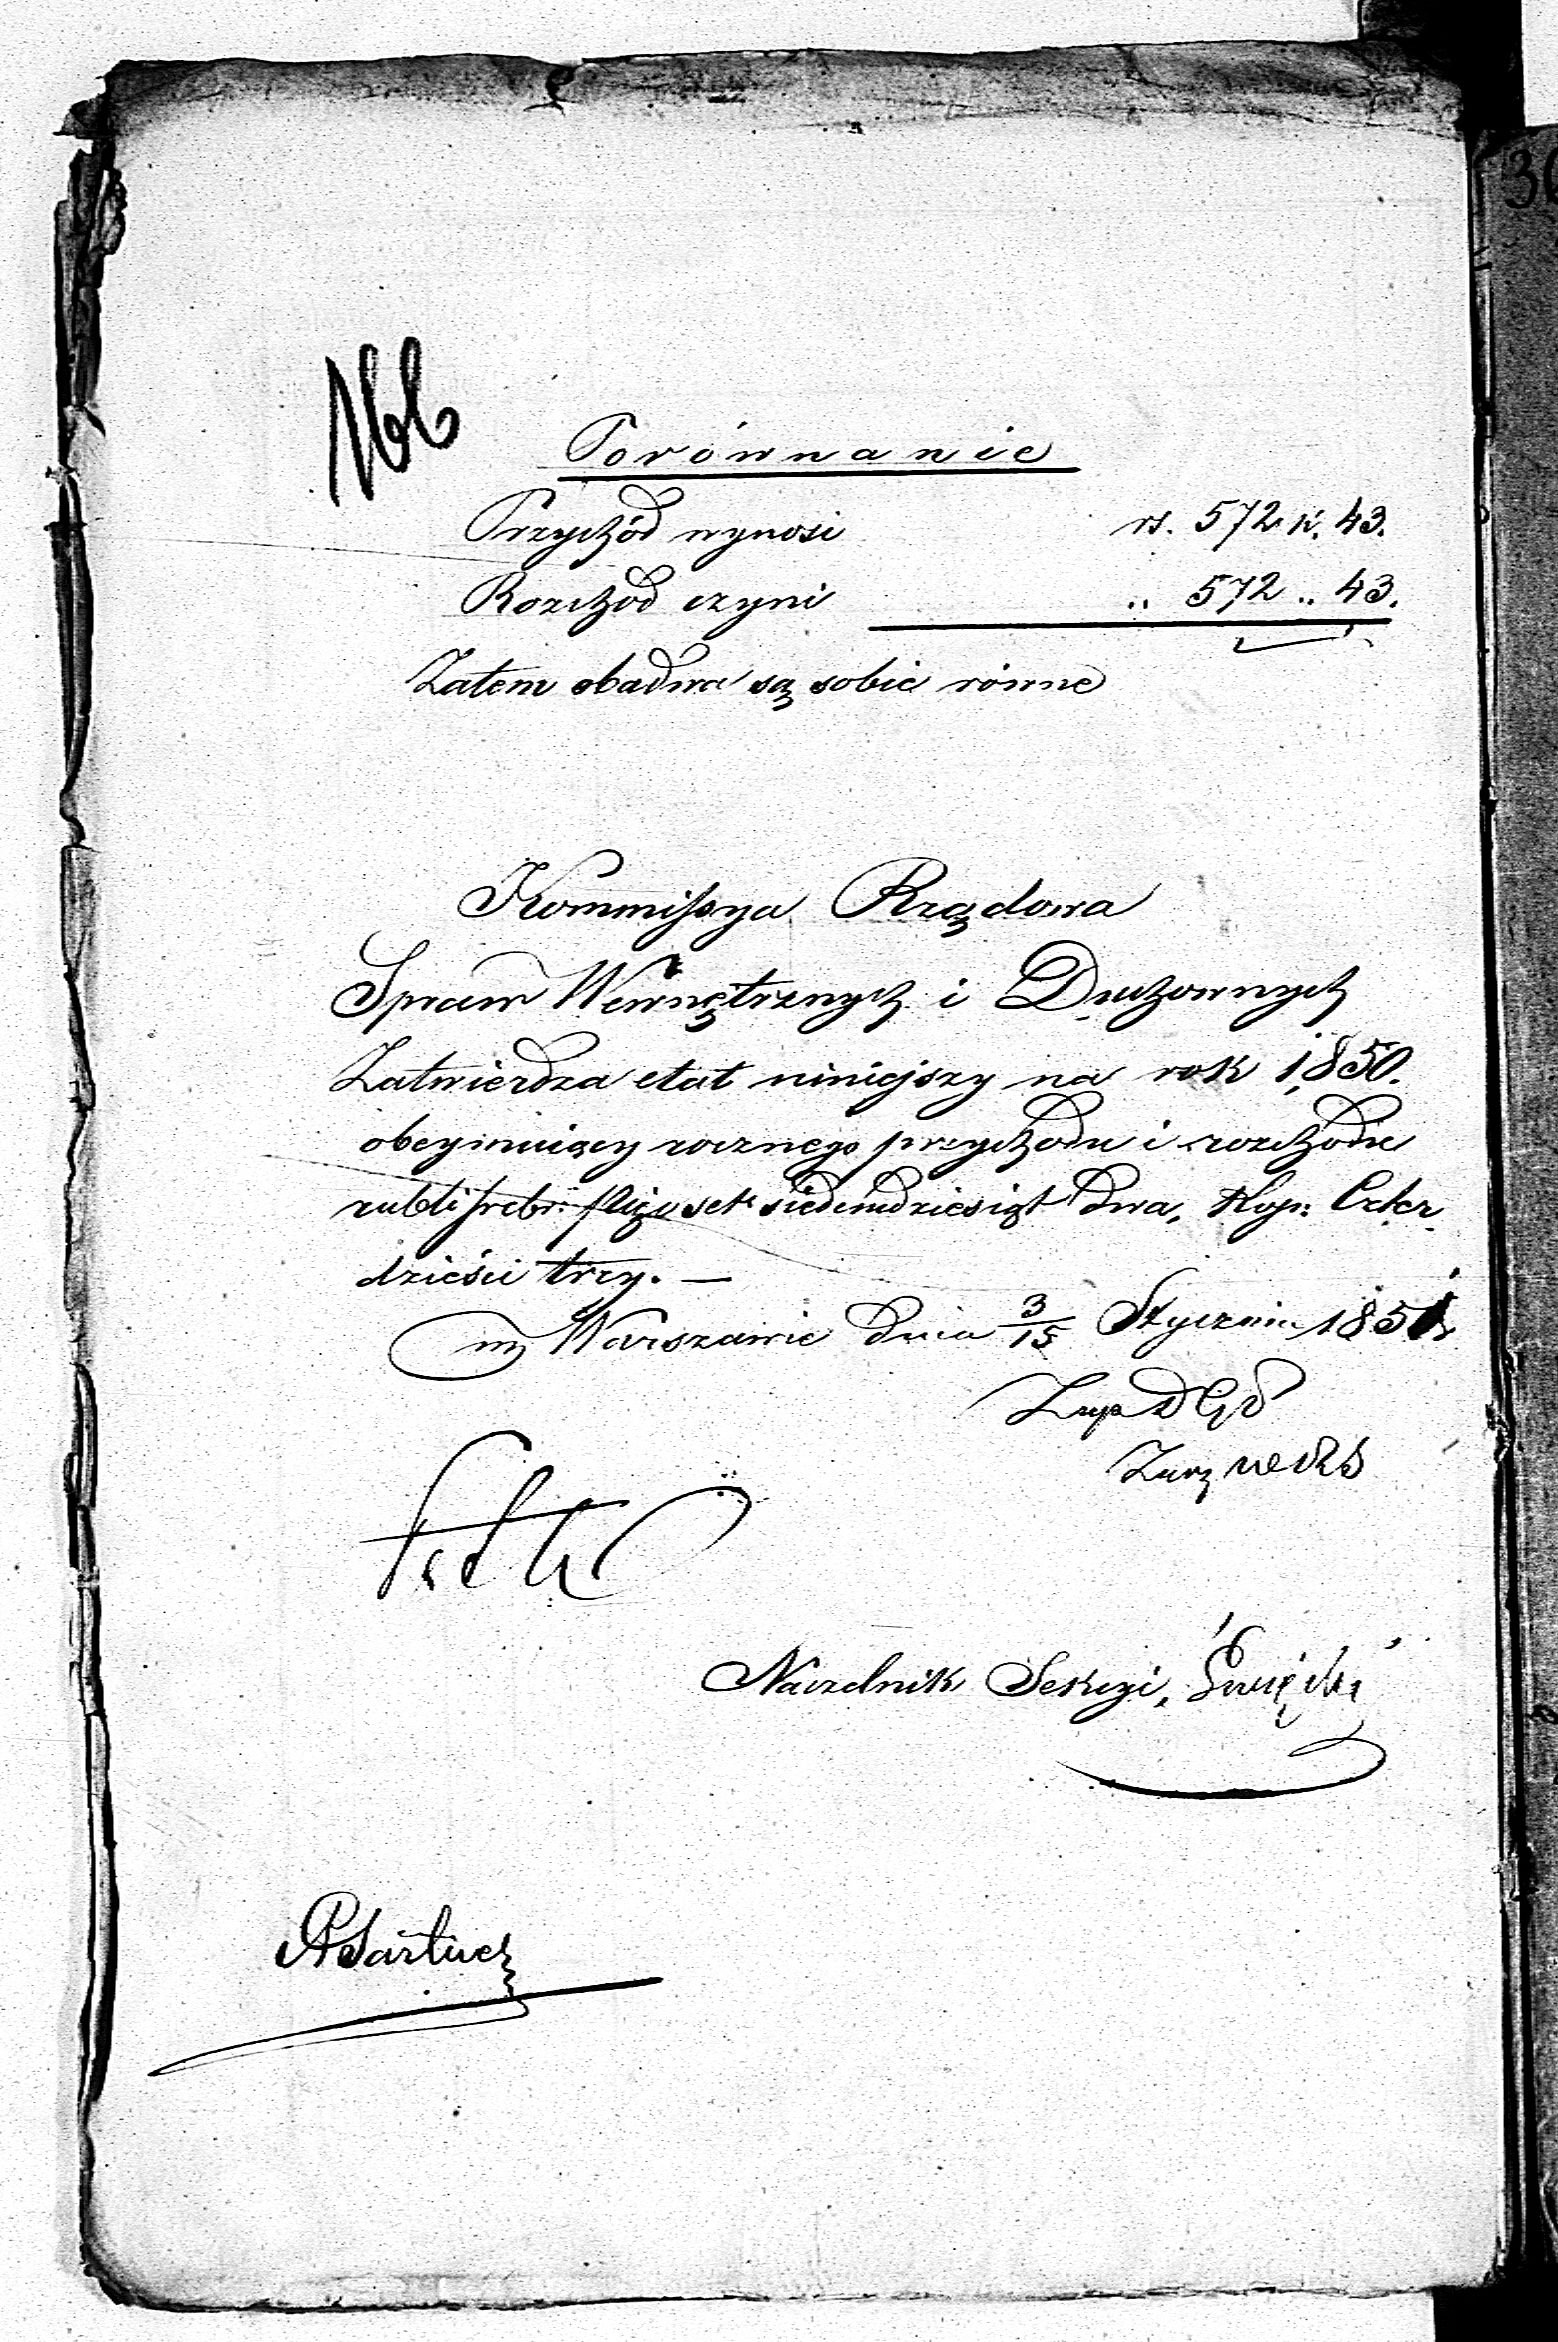 166
Porównanie
Przychód wynosi rs. 572 k. 43.
Rozchód czyni „ 572 „ 43.
Zatem obadwa są sobie równe
Kommissya Rządowa
Spraw Wewnętrznych i Duchownych
Zatwierdza etat niniejszy na rok 1850.
obeymuiący rocznego przychodu i rozchodu
rubli srebr: pięćset siedemdziesiąt dwa, Kop: Czter
dzieści trzy. —
w Warszawie dnia 3/15 Stycznia 1851
Naczelnik Sekcyi, Święcki
30